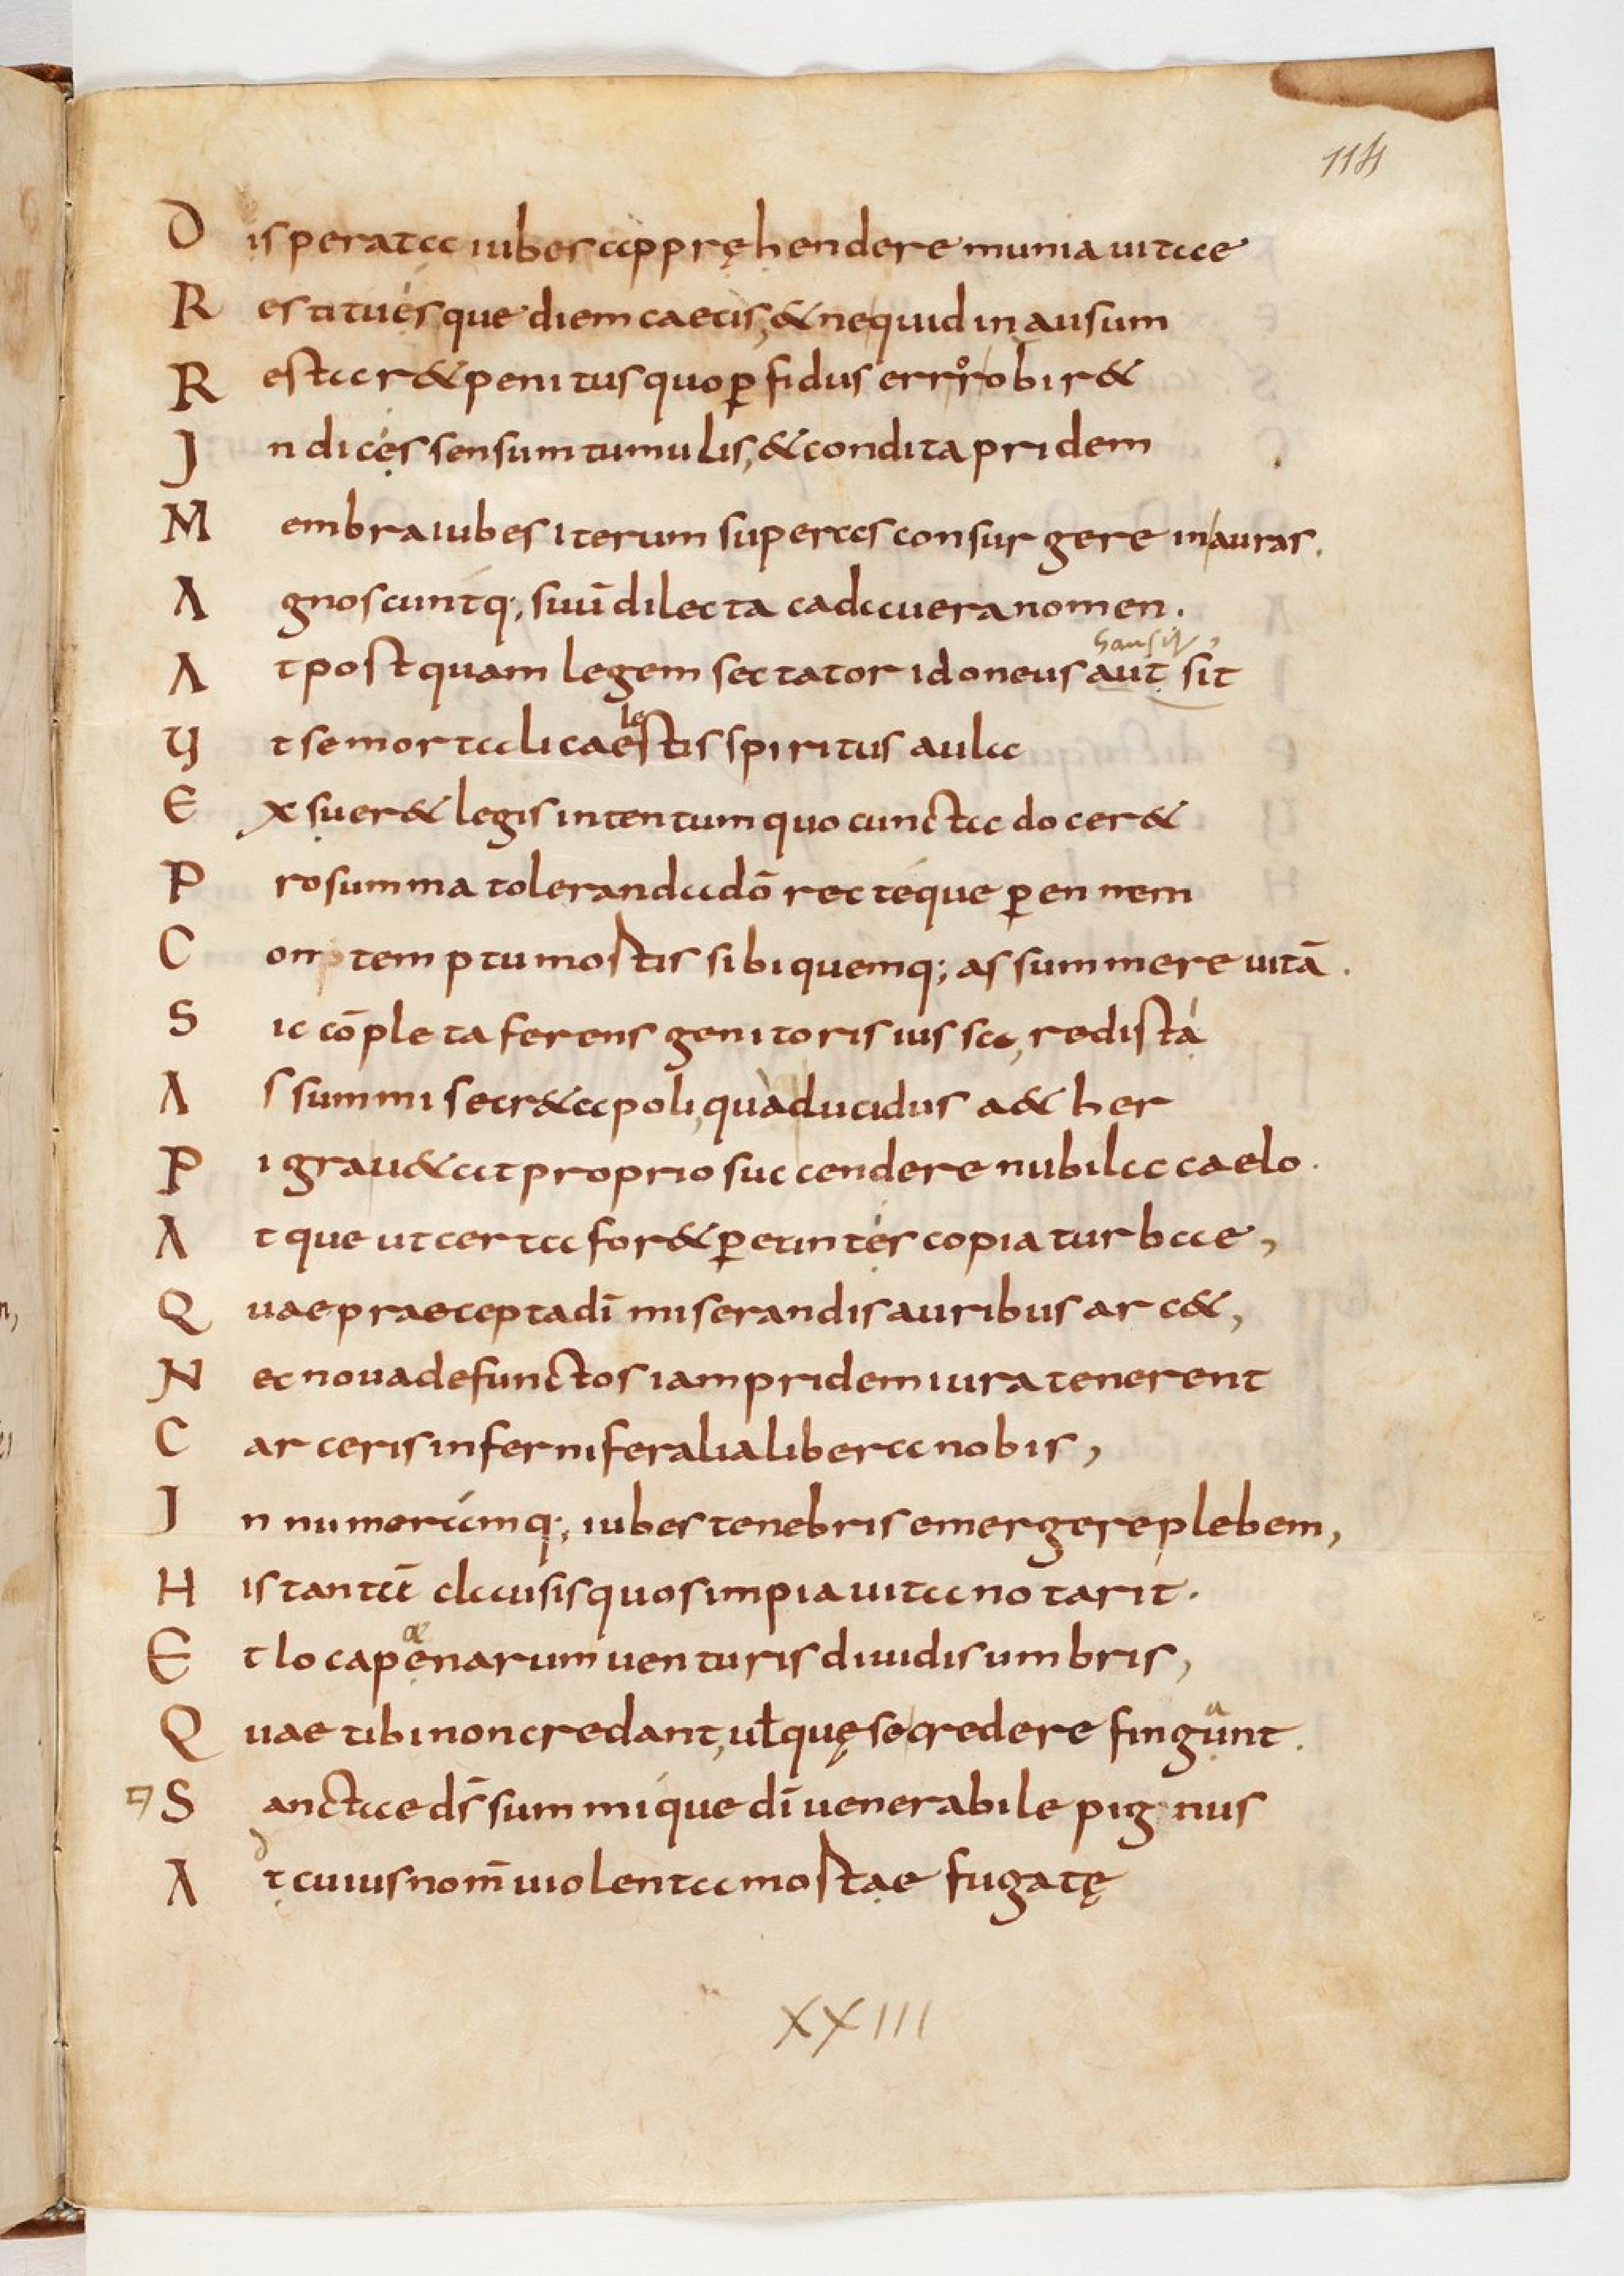 114
Disperata iubes appręhendere munia uitae
Restituesque diem caecis, & nequid inausum
Restar& penitus quo ꝑfidus error obir&
Indices sensum tumulis, & condita pridem
Membra iubes iterum superas consurgere in auras.
Agnoscuntq; suū dilecta cadauera nomen.
hausit
At postquam legem sectator idoneus aut sit
le
Ut se mortali caestis spiritus aula
Exsuer& legis intentum quo cuncta docer&
Pro summa toleranda dō recteque ꝑennem
Comtemptu mostis sibi quemq; assummere uitā.
Sic cōpleta ferens genitoris iussa, redista
As summi secr&a poli, qua ducidus a&her
Pigrau&at proprio succendere nubila caelo.
Atque ut certa for& ꝑetinter copia turbae,
Quae praecepta dī miserandis auribus arc&,
Nec noua defunctos iam pridem iura tenerent
Carceris inferni feralia libera nobis,
Innumeramq; iubes tenebris emergere plebem,
His tantū clausis quos impia uita notarit.
æ
Et loca penarum uenturis diuidis umbris,
a
Quae tibi non credant, uƚ quę se credere fingunt.
Sanctae ds̄ summique dī uenerabile pignus
d
At cuius nom̄ uiolenta mostae fugatę
XXIII